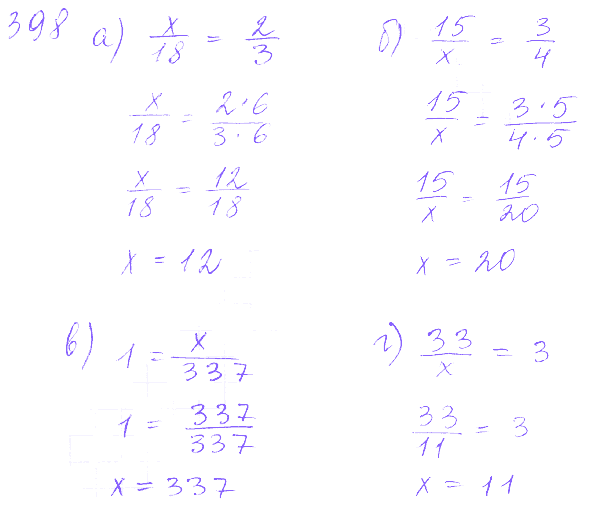 398 а) x/18 = 2/3
x/18 = 2·6/3·6
x/18 = 12/18
x = 12
б) 15/x = 3/4
15/x = 3·5/4·5
15/x = 15/20
x = 20
в) 1 = x/337
1 = 337/337
x = 337
г) 33/x = 3
33/11 = 3
x = 11